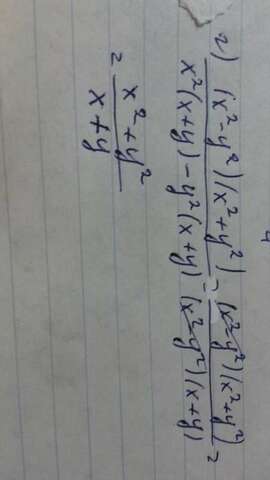 г) (x²-y²)(x²+y²) / x²(x+y) - y²(x+y) = (x²-y²)(x²+y²) / (x²-y²)(x+y) =
= x²+y² / x+y